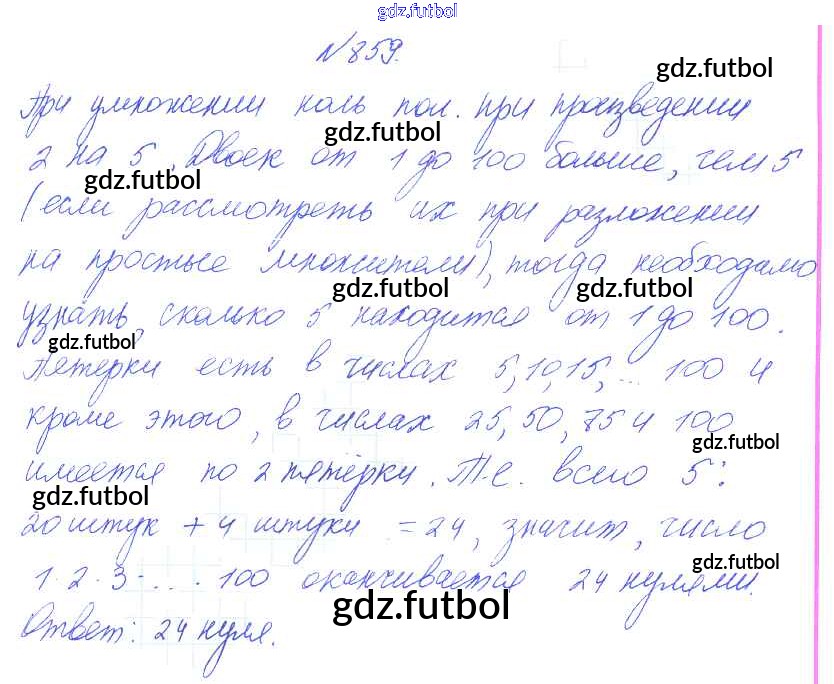 gdz.futbol
№859.
gdz.futbol
При умножении ноль пол. при произведении
gdz.futbol
2 на 5. Двоек от 1 до 100 больше, чем 5
gdz.futbol
(если рассмотреть их при разложении
на простые множители), тогда необходимо
gdz.futbol gdz.futbol
узнать, сколько 5 находится от 1 до 100.
gdz.futbol
Пятерки есть в числах 5, 10, 15, ... 100 и
кроме этого, в числах 25, 50, 75 и 100
gdz.futbol
имеется по 2 пятёрки. Т.е. всего 5:
gdz.futbol
20 штук + 4 штуки = 24, значит, число
gdz.futbol
1·2·3·...·100 оканчивается 24 нулями.
gdz.futbol
Ответ: 24 нуля.